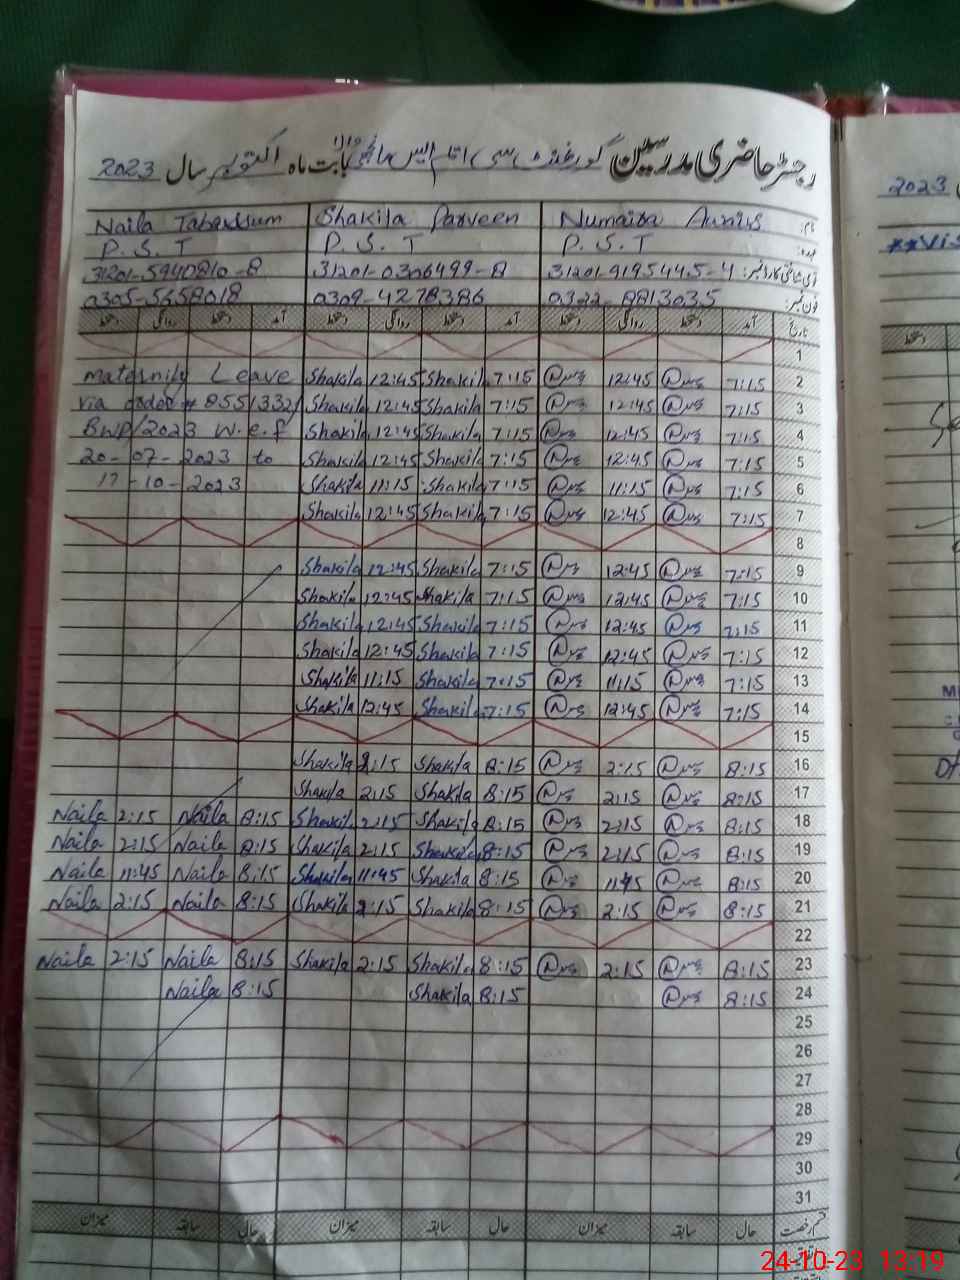 رجسٹر حاضری مدرسین گورنمنٹ سی ایم ایس بابت ماہ اکتوبر سال 2023
نام: Numaira Shakila Parveen Naila Tabassum
عہدہ: P.S.T P.S.T P.S.T
قومی شناختی کارڈ نمبر: 31201-9195445-4 31201-0306499-8 31201-5940810-8
فون نمبر: 0322-8813035 0309-4278386 0305-5658018
تاریخ آمد دستخط روانگی دستخط آمد دستخط روانگی دستخط آمد دستخط روانگی دستخط
1
Maternity Leave Shakila 12:45 Shakila 7:15 12:45 7:15 2
via order # 8551332/ Shakila 12:45 Shakila 7:15 12:45 7:15 3
BWP/2023 w.e.f Shakila 12:45 Shakila 7:15 12:45 7:15 4
20-07-2023 to Shakila 12:45 Shakila 7:15 12:45 7:15 5
17-10-2023 Shakila 11:15 Shakila 7:15 11:15 7:15 6
Shakila 12:45 Shakila 7:15 12:45 7:15 7
8
Shakila 12:45 Shakila 7:15 12:45 7:15 9
Shakila 12:45 Shakila 7:15 12:45 7:15 10
Shakila 12:45 Shakila 7:15 12:45 7:15 11
Shakila 12:45 Shakila 7:15 12:45 7:15 12
Shakila 11:15 Shakila 7:15 11:15 7:15 13
Shakila 12:45 Shakila 7:15 12:45 7:15 14
15
Shakila 2:15 Shakila 8:15 2:15 8:15 16
Shakila 2:15 Shakila 8:15 2:15 8:15 17
Naila 2:15 Naila 8:15 Shakila 2:15 Shakila 8:15 2:15 8:15 18
Naila 2:15 Naila 8:15 Shakila 2:15 Shakila 8:15 2:15 8:15 19
Naila 11:45 Naila 8:15 Shakila 11:45 Shakila 8:15 11:45 8:15 20
Naila 2:15 Naila 8:15 Shakila 2:15 Shakila 8:15 2:15 8:15 21
22
Naila 2:15 Naila 8:15 Shakila 2:15 Shakila 8:15 2:15 8:15 23
Naila 8:15 Shakila 8:15 8:15 24
25
26
27
28
29
30
31
قسم رخصت حال سابقہ میزان حال سابقہ میزان حال سابقہ میزان
2023
24-10-23 13:19